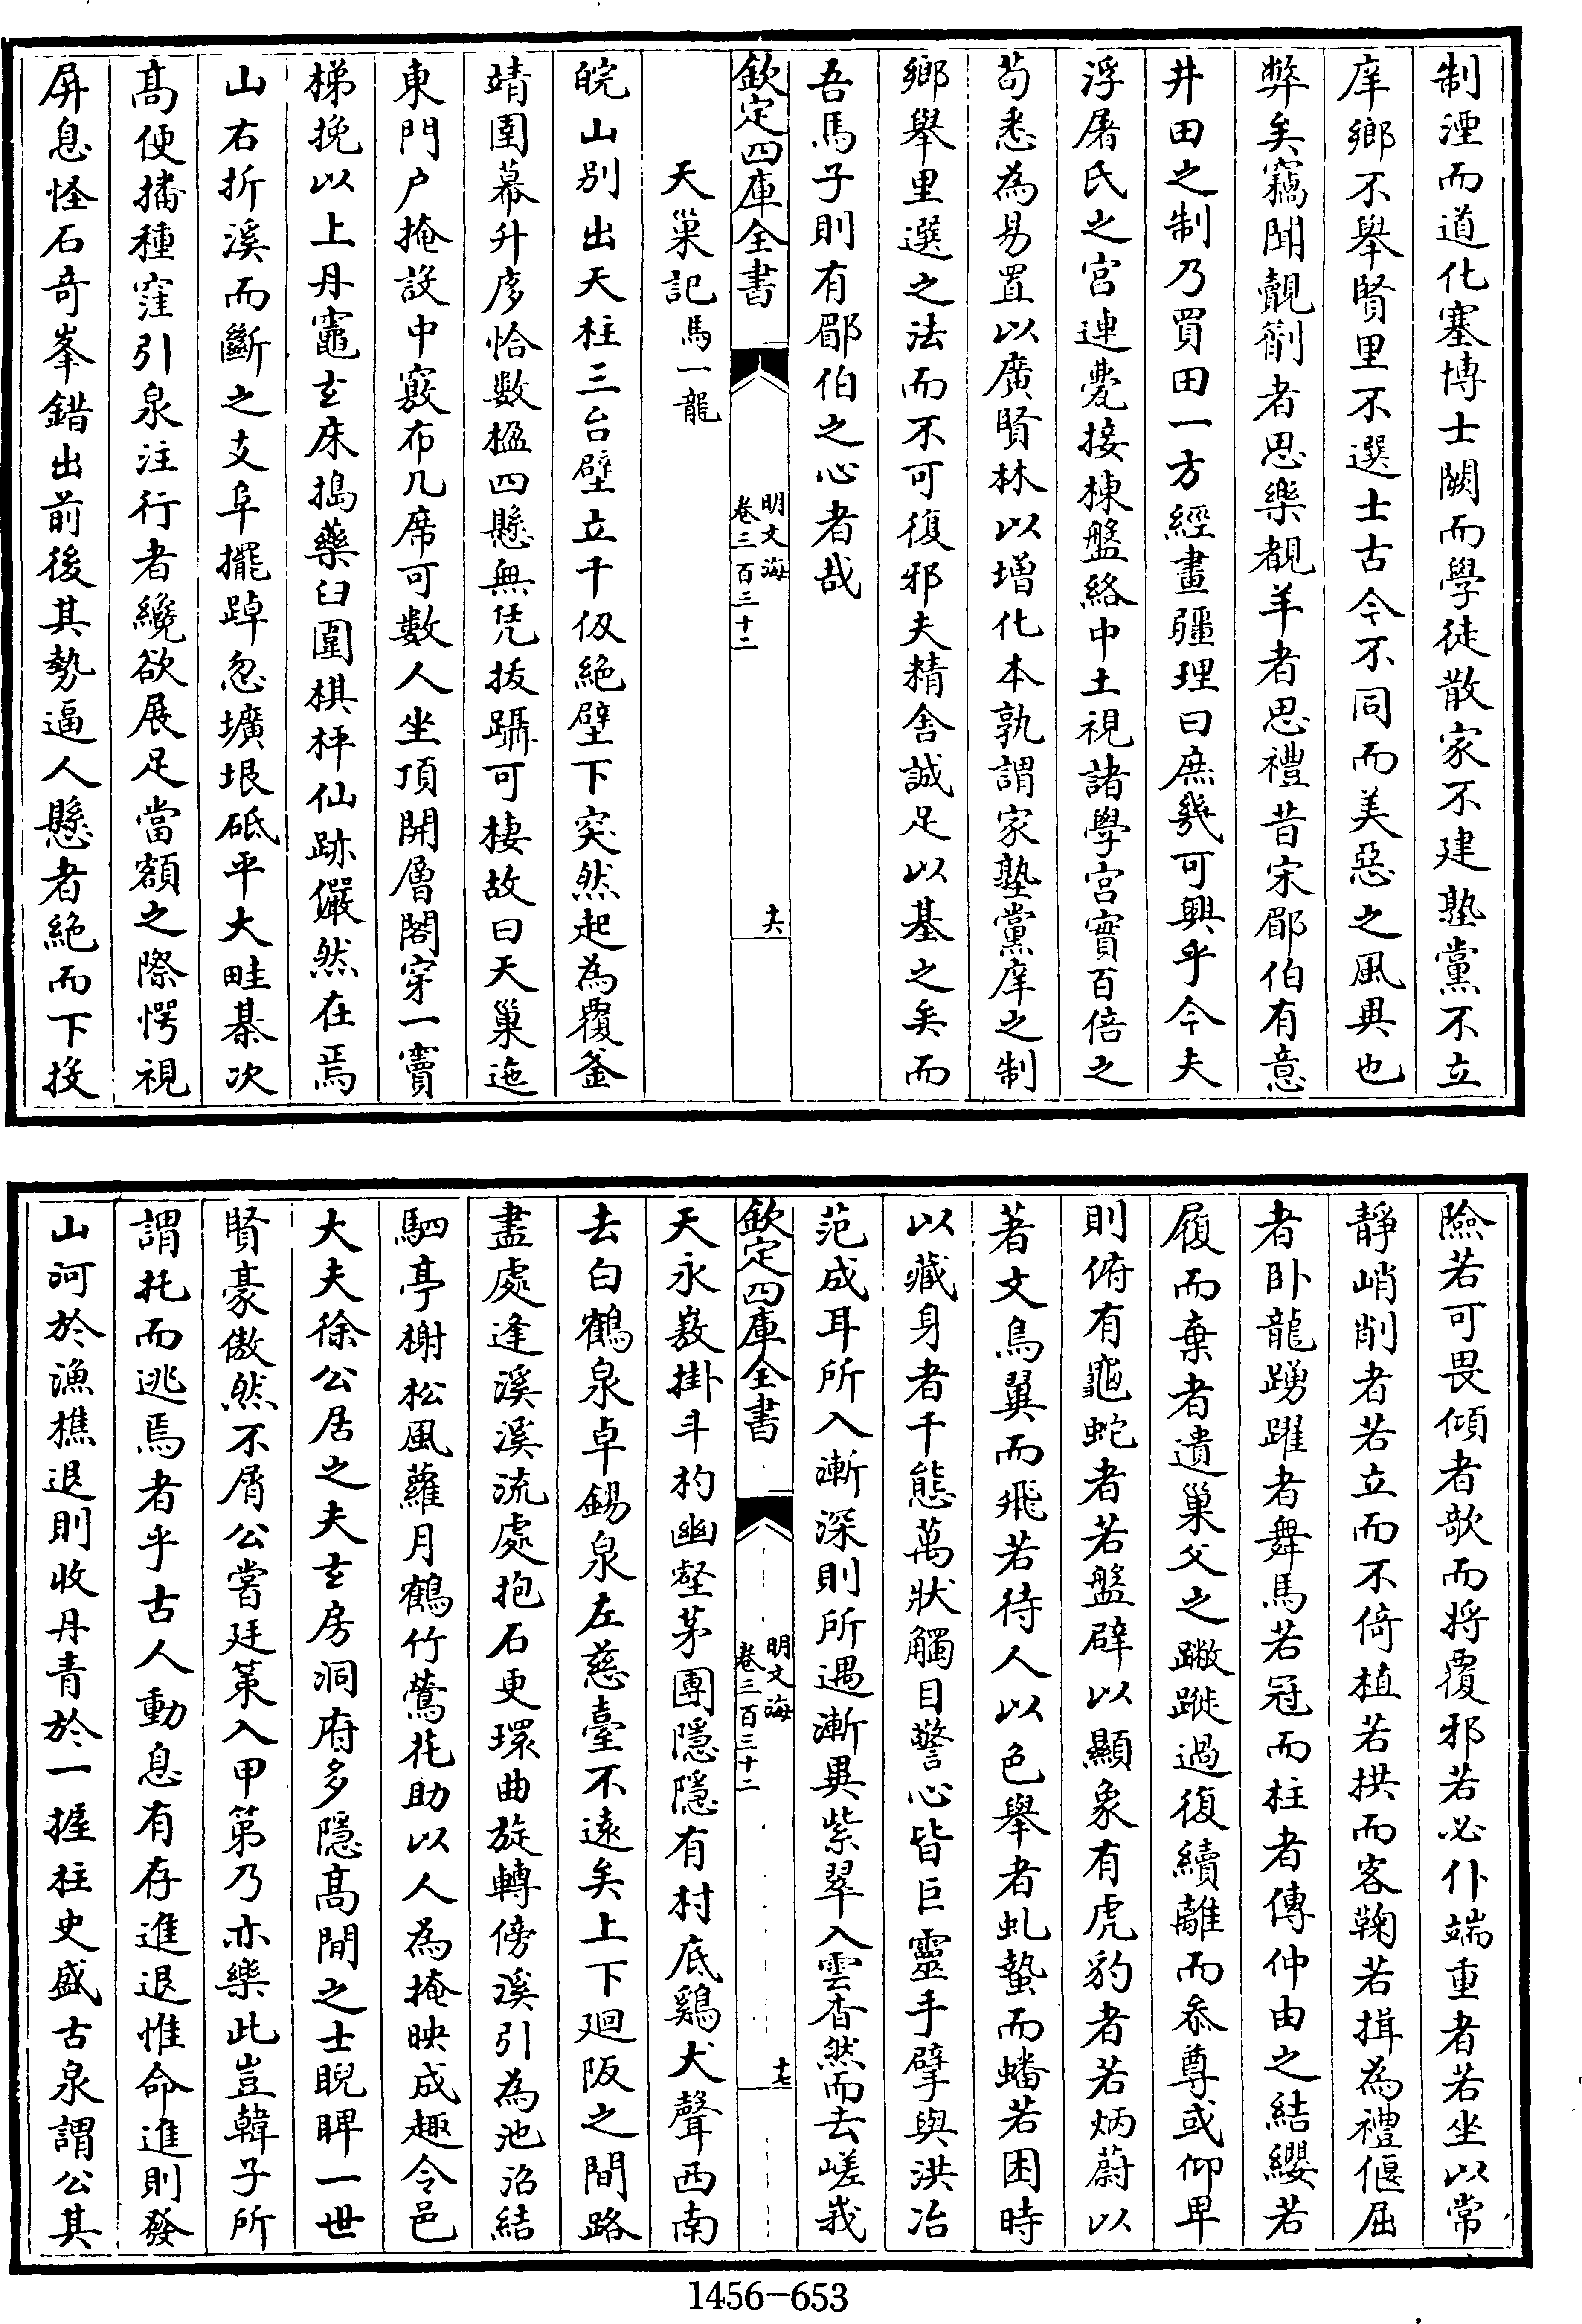 制湮而道化塞博士闕而學徒散家不建塾黨不立
庠鄉不舉賢里不選士古今不同而美惡之風異也
弊矣竊聞覩觿者思樂覩羊者思禮昔宋郿伯有意
井田之制乃買田一方經畫疆理曰庶㡬可興乎今夫
浮屠氏之宮連甍接棟盤絡中土視諸學宮實百倍之
苟悉為易置以廣賢林以增化本孰謂家塾黨庠之制
鄉舉里選之法而不可復邪夫精舍誠足以基之矣而
吾馬子則有郿伯之心者哉
欽定四庫全書
明文海
卷三百三十二
十六
天巢記馬一龍
皖山别出天柱三台壁立千仭絶壁下突然起為覆釜
靖圍幕升庨恰數楹四懸無凭拔躡可棲故曰天巢迤
東門户掩設中竅布几席可數人坐頂開層閣穿一竇
梯挽以上丹竈玄床搗藥臼圍棋枰仙跡儼然在焉
山右折溪而斷之支阜擺踔忽壙垠砥平大畦棊次
髙便播種窪引泉注行者纔欲展足當額之際愕視
屏息怪石竒峯錯出前後其勢逼人懸者絶而下投
險若可畏傾者欹而將覆邪若必仆端重者若坐以常
靜峭削者若立而不倚植若拱而客鞠若揖為禮偃屈
者卧龍踴躍者舞馬若冠而柱者傳仲由之結纓若
履而棄者遺巢父之蹝蹤過復續離而叅尊或仰卑
則俯有龜蛇者若盤辟以顯象有虎豹者若炳蔚以
著文鳥翼而飛若待人以色舉者虬蟄而蟠若困時
以藏身者千態萬狀觸目警心皆巨靈手擘與洪冶
范成耳所入漸深則所遇漸異紫翠入雲杳然而去嵯峩
欽定四庫全書
明文海
卷三百三十二
十七
天永嶔掛斗杓幽壑茅團隱隱有村底鷄犬聲西南
去白鶴泉卓錫泉左慈臺不逺矣上下廻阪之間路
盡處逢溪溪流處抱石更環曲旋轉傍溪引為池沼結
駟亭榭松風蘿月鶴竹鶯花助以人為掩映成趣令邑
大夫徐公居之夫玄房洞府多隱髙閒之士睨睥一世
賢豪傲然不屑公嘗廷策入甲第乃亦樂此豈韓子所
謂托而逃焉者乎古人動息有存進退惟命進則發
山河於漁樵退則收丹青於一握柱史盛古泉謂公其
1456-653